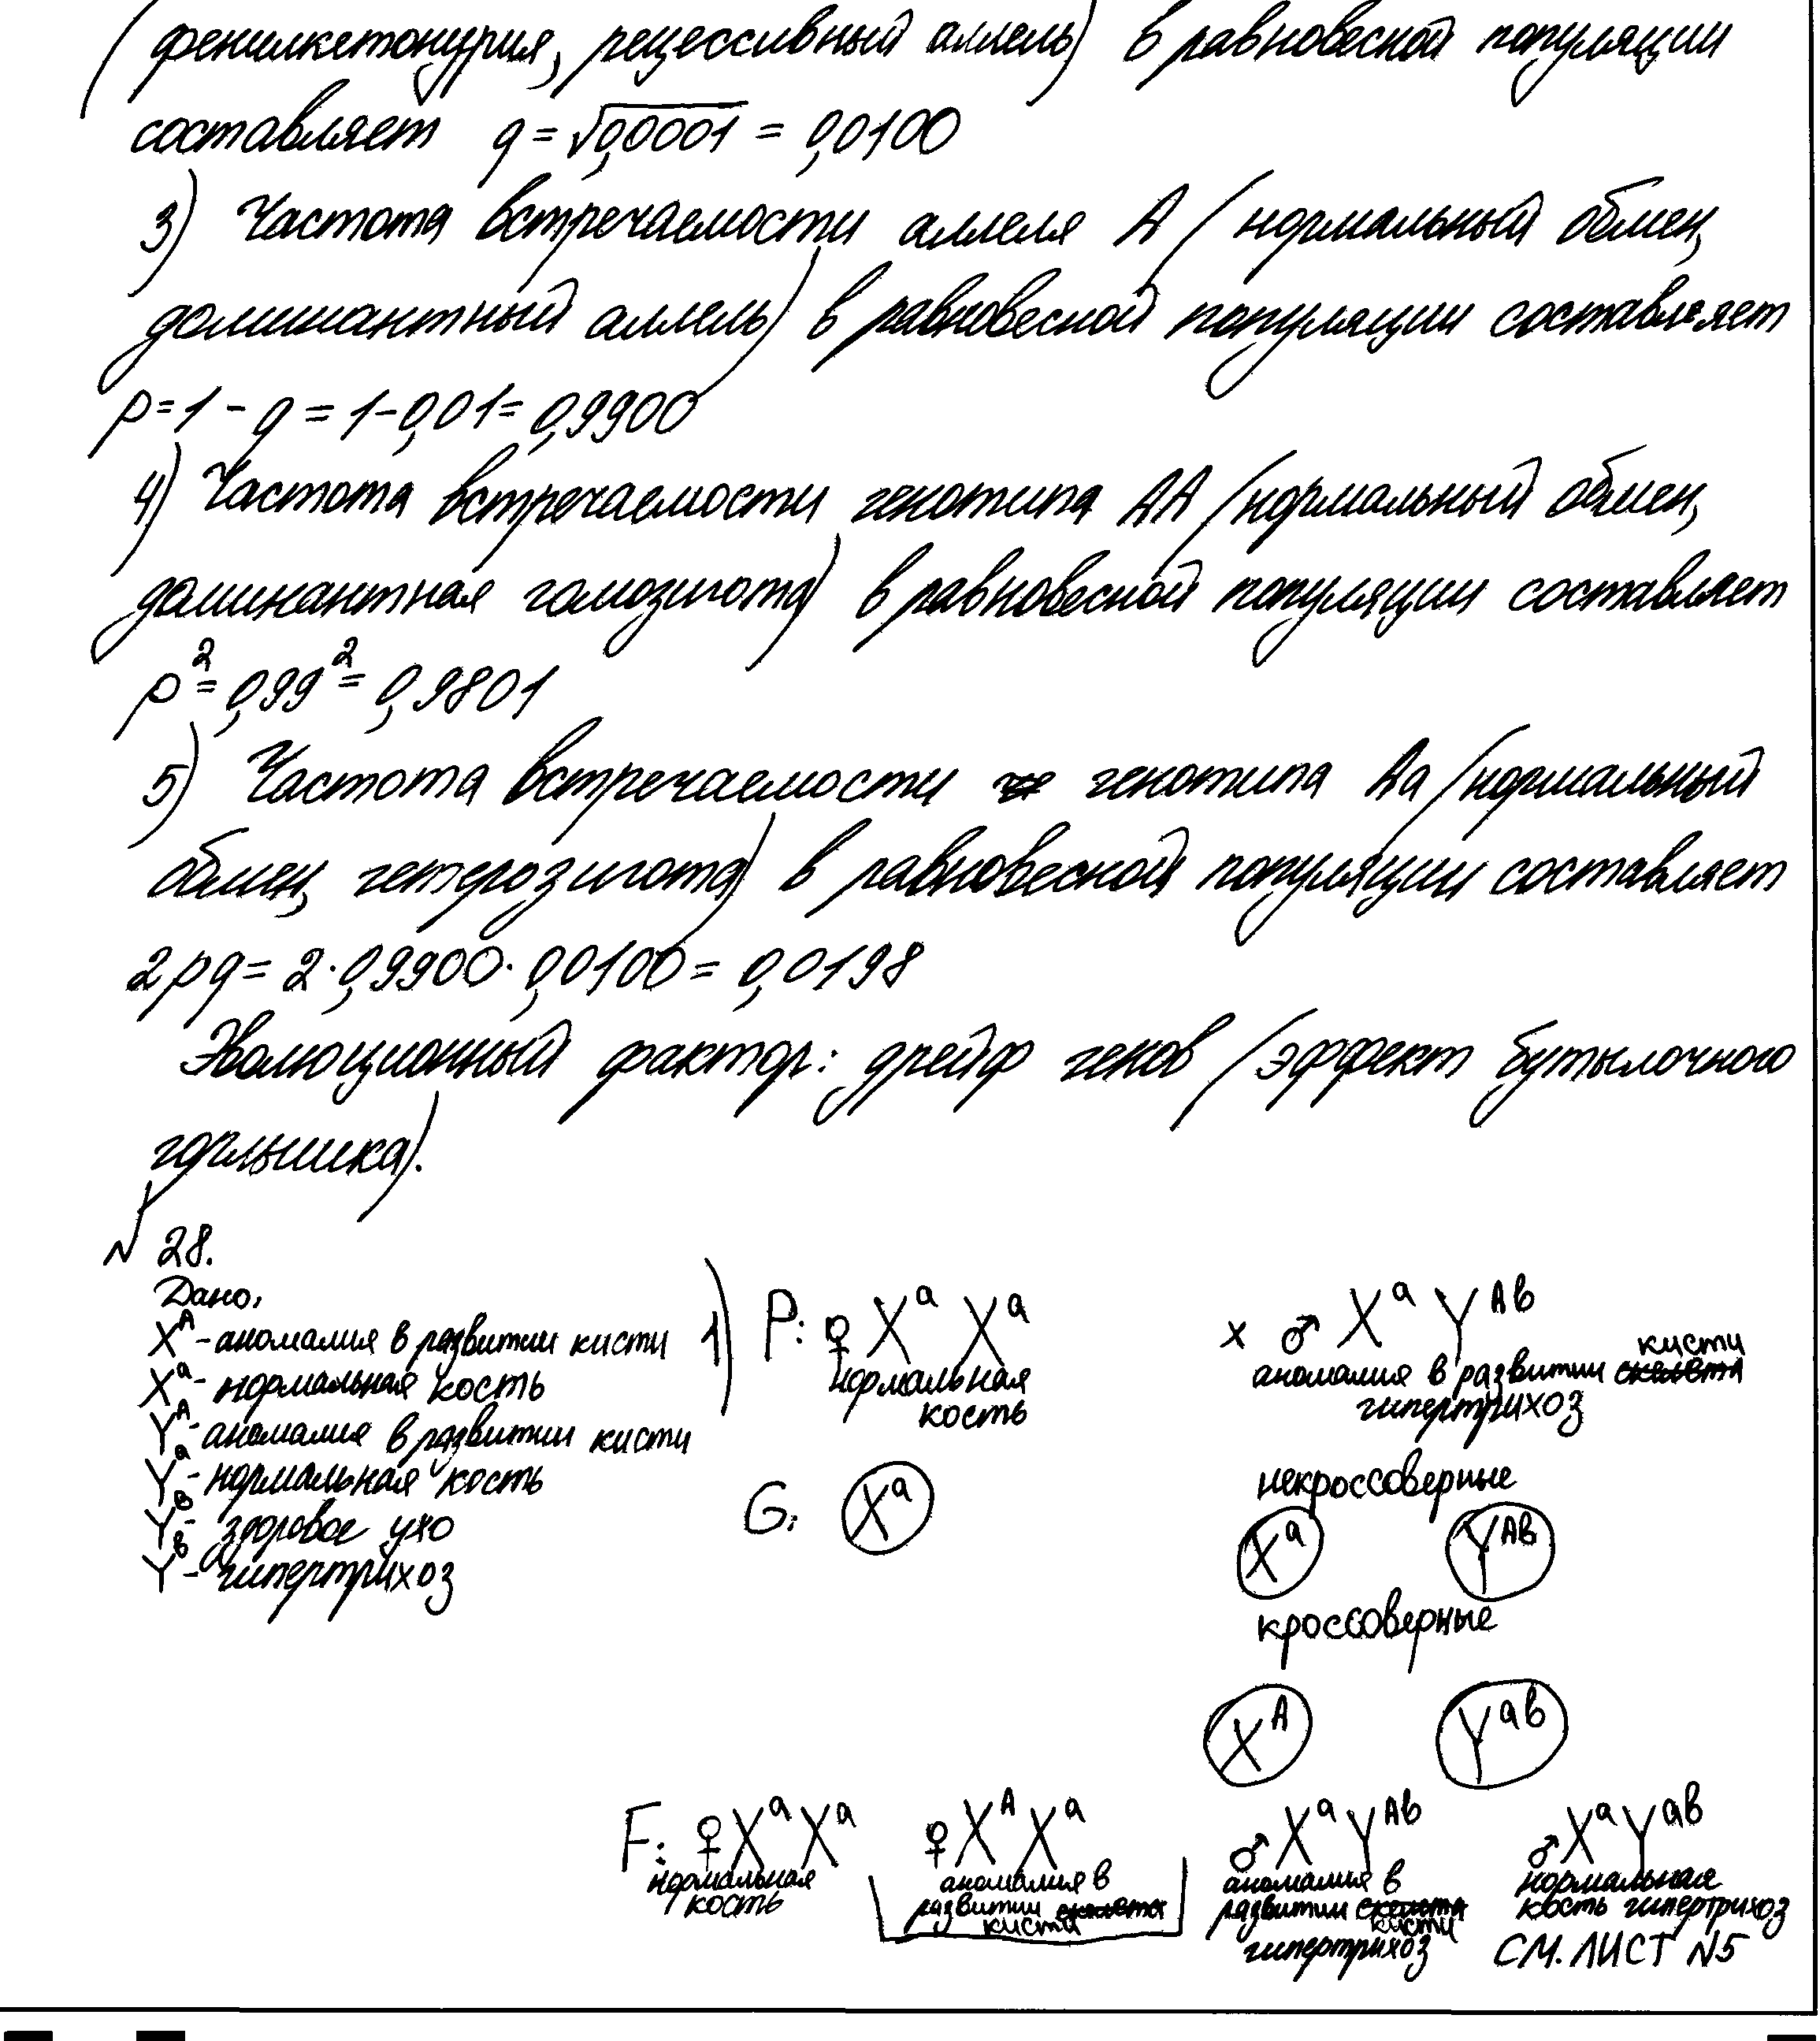 (фенилкетонурия, рецессивный аллель) в равновесной популяции
составляет q = √0,0001 = 0,0100
3) Частота встречаемости аллеля А (нормальный обмен,
доминантный аллель) в равновесной популяции составляет
p = 1 - q = 1 - 0,01 = 0,9900
4) Частота встречаемости генотипа АА (нормальный обмен,
доминантная гомозигота) в равновесной популяции составляет
p² = 0,99² = 0,9801
5) Частота встречаемости генотипа Аа (нормальный
обмен, гетерозигота) в равновесной популяции составляет
2pq = 2·0,9900·0,0100 = 0,0198
Эволюционный фактор: дрейф генов (эффект бутылочного
горлышка).
№ 28.
Дано:
Xᴬ - аномалия в развитии кисти
Xᵃ - нормальная кость
Yᴬ - аномалия в развитии кисти
Yᵃ - нормальная кость
Yᴮ - здоровое ухо
Yᵇ - гипертрихоз
1) P: ♀ Xᵃ Xᵃ x ♂ Xᵃ Yᴬᵇ
нормальная кость
аномалия в развитии кисти
гипертрихоз
некроссоверные
G: Xᵃ Xᵃ Yᴬᵇ
кроссоверные
Xᴬ Yᵃᵇ
F: ♀ Xᵃ Xᵃ ♀ Xᴬ Xᵃ ♂ Xᵃ Yᴬᵇ ♂ Xᵃ Yᵃᵇ
нормальная кость
аномалия в развитии кисти
аномалия в развитии кисти гипертрихоз
нормальная кость гипертрихоз
СМ. ЛИСТ №5